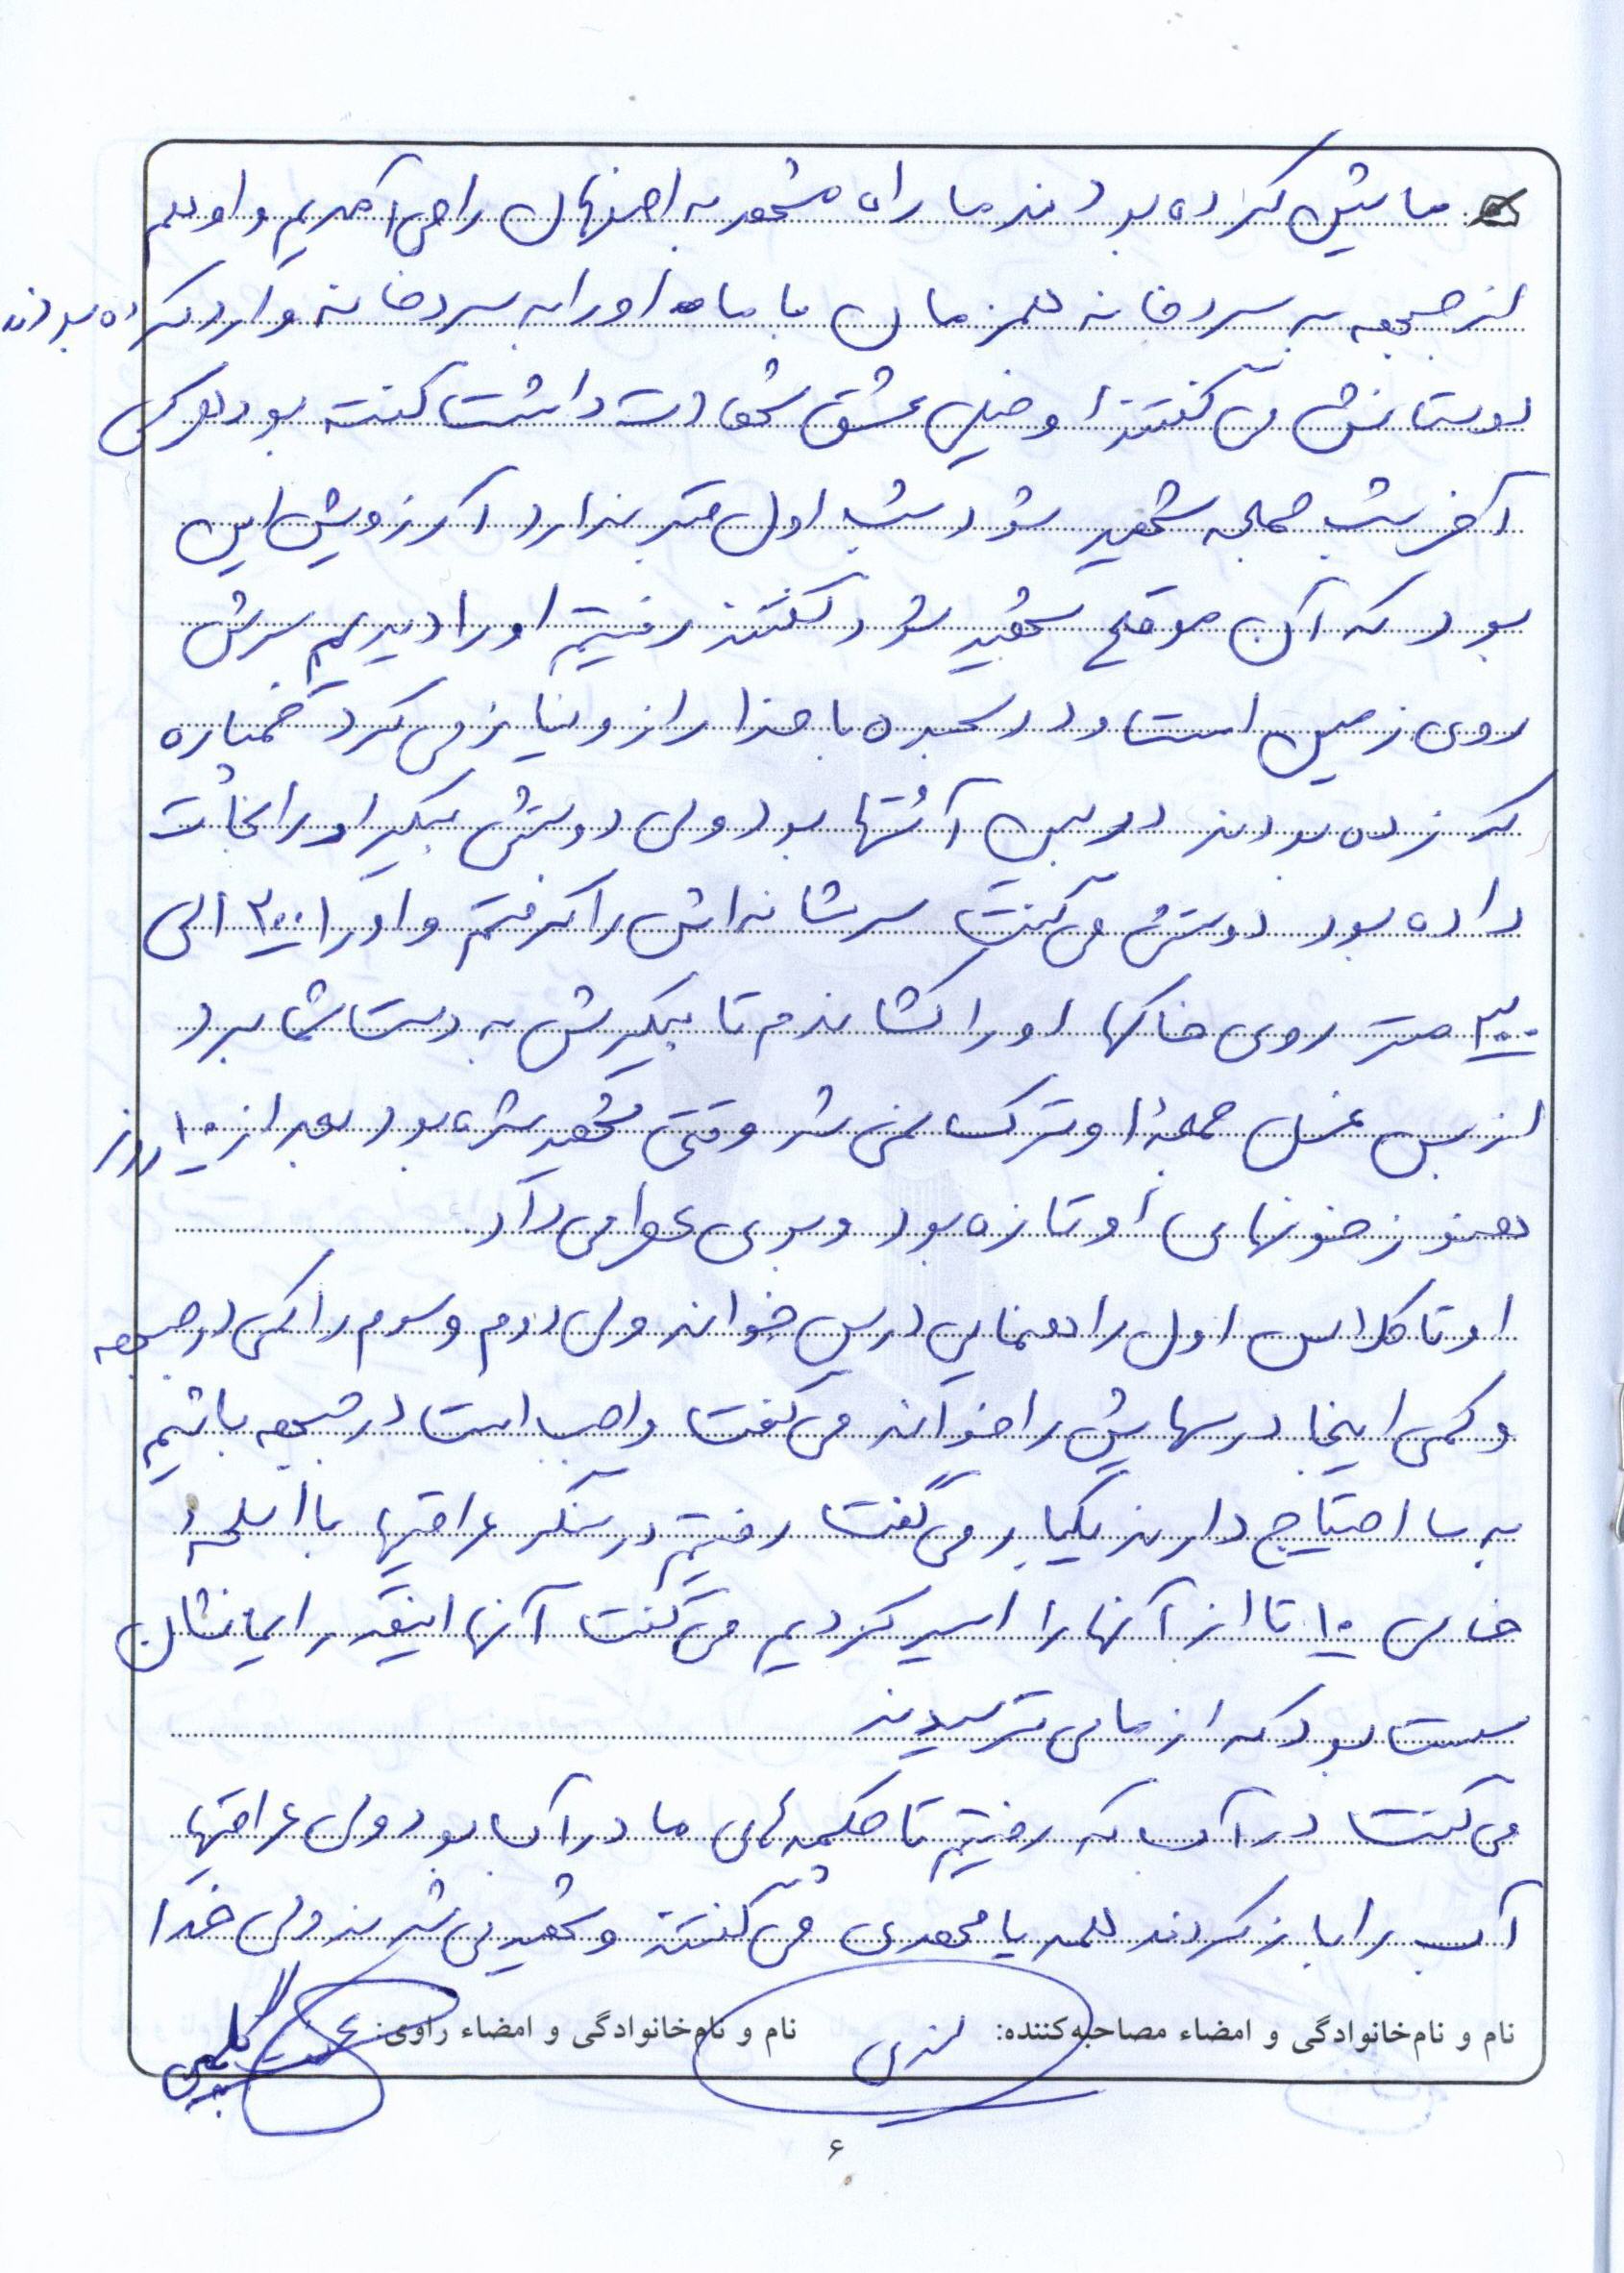 مایش کرده بودند ما راه مشهد به اصفهان را می آمدیم و او هم
از جبهه به سردخانه همزمان با ما او را به سردخانه وارد کرده بودند
دوستانش می گفتند او خیلی عشق شهادت داشت گفته بود هر کی
آخر شب جمعه شهید شود شب اول قبر ندارد آرزویش این
بود که آن موقع شهید شود گفتند رفتیم او را دیدیم سرش
روی زمین است و در سجده با خدا راز و نیاز می کرد خمپاره
که زده بودند در بین آتشها بود ولی دوستش پیکر او را نجات
داده بود دوستش می گفت سر شانه اش را گرفتم و او را ۲۰۰ الی
۳۰۰ متر روی خاکها او را کشاندم تا پیکرش به دست شما برسد
از بس غسل جمعه او ترک نمی شد وقتی شهید شده بود بعد از ۱۰ روز
هنوز خونهای او تازه بود و بوی عطر می داد
او تا کلاس اول راهنمایی درس خواند ولی دوم و سوم را کمی در جبهه
و کمی اینجا درسهایش را خواند می گفت واجب است در جبهه باشیم
به ما احتیاج دارند یکبار می گفت رفتیم در سنگر عراقیها با اسلحهٔ
خالی ۱۰ تا از آنها را اسیر کردیم می گفت آنها اینقدر ایمانشان
سست بود که از ما می ترسیدند
می گفت در آب که رفتیم تا چکمه های ما در آب بود ولی عراقیها
آب را باز کردند همه یا مهدی می گفتند و شهید می شدند ولی خدا
نام و نام‌خانوادگی و امضاء مصاحبه‌کننده: نام و نام‌خانوادگی و امضاء راوی:
۶